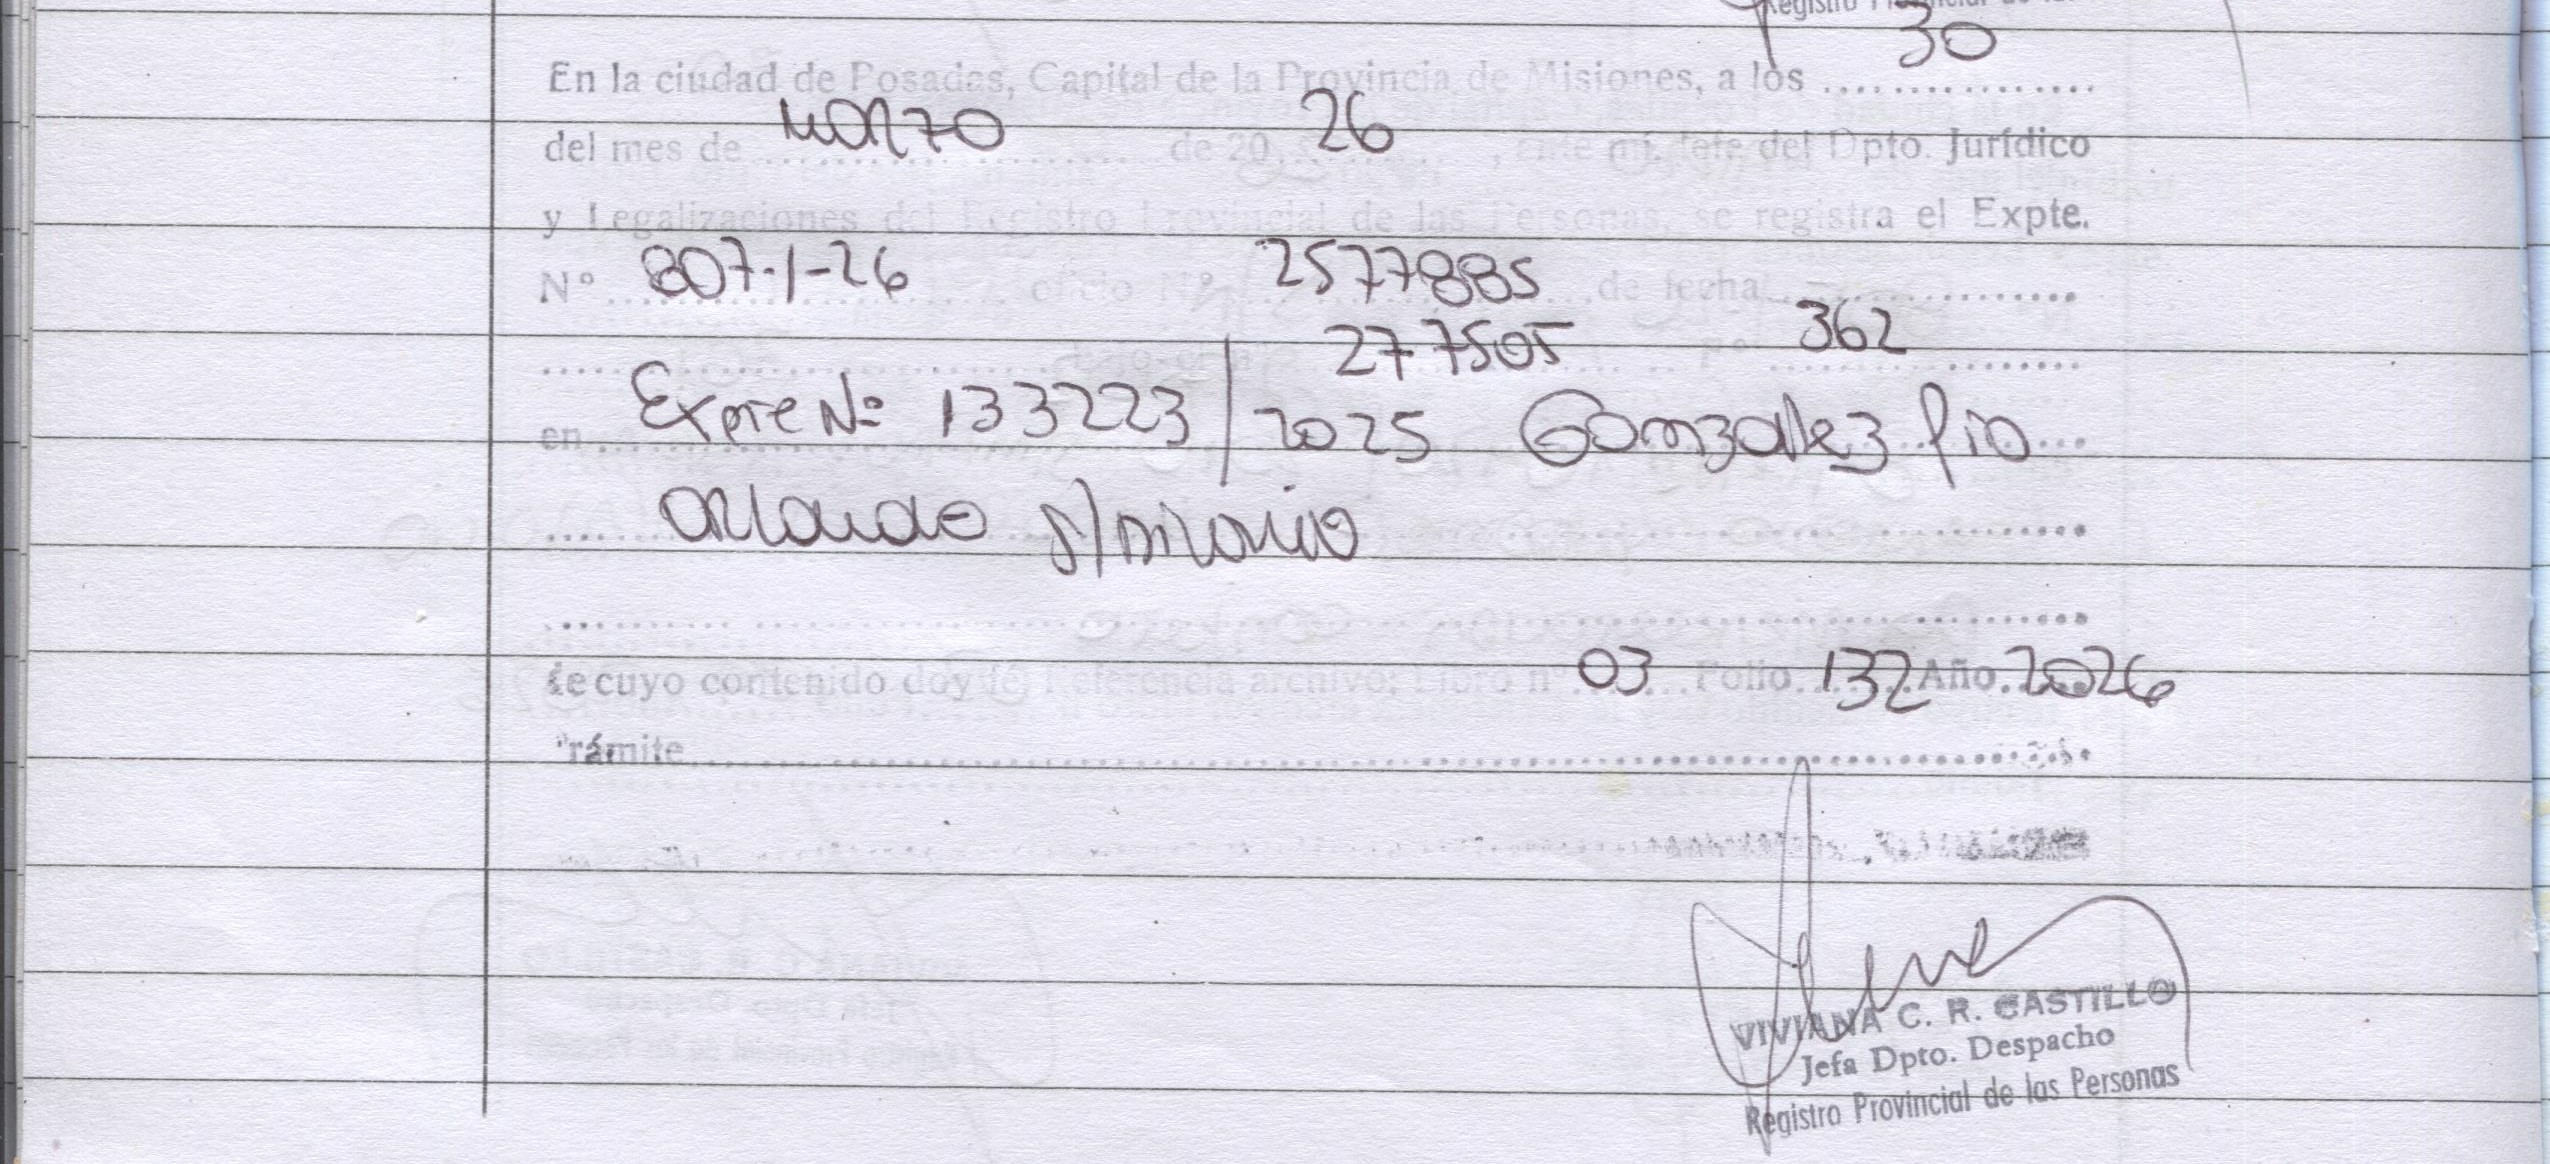 Registro Provincial de las
En la ciudad de Posadas, Capital de la Provincia de Misiones, a los 30
del mes de Marzo de 20 26, ante mí, Jefe del Dpto. Jurídico
y Legalizaciones del Registro Provincial de las Personas, se registra el Expte.
Nº 807-1-26 oficio Nº 2577885 de fecha
277505 Fº 362
en Expte Nº 133223/2025 Gonzalez Pio
Orlando s/
de cuyo contenido doy fé, Referencia archivo: Libro nº 03 Folio 132 Año 2026
Trámite
VIVIANA C. R. CASTILLO
Jefa Dpto. Despacho
Registro Provincial de las Personas